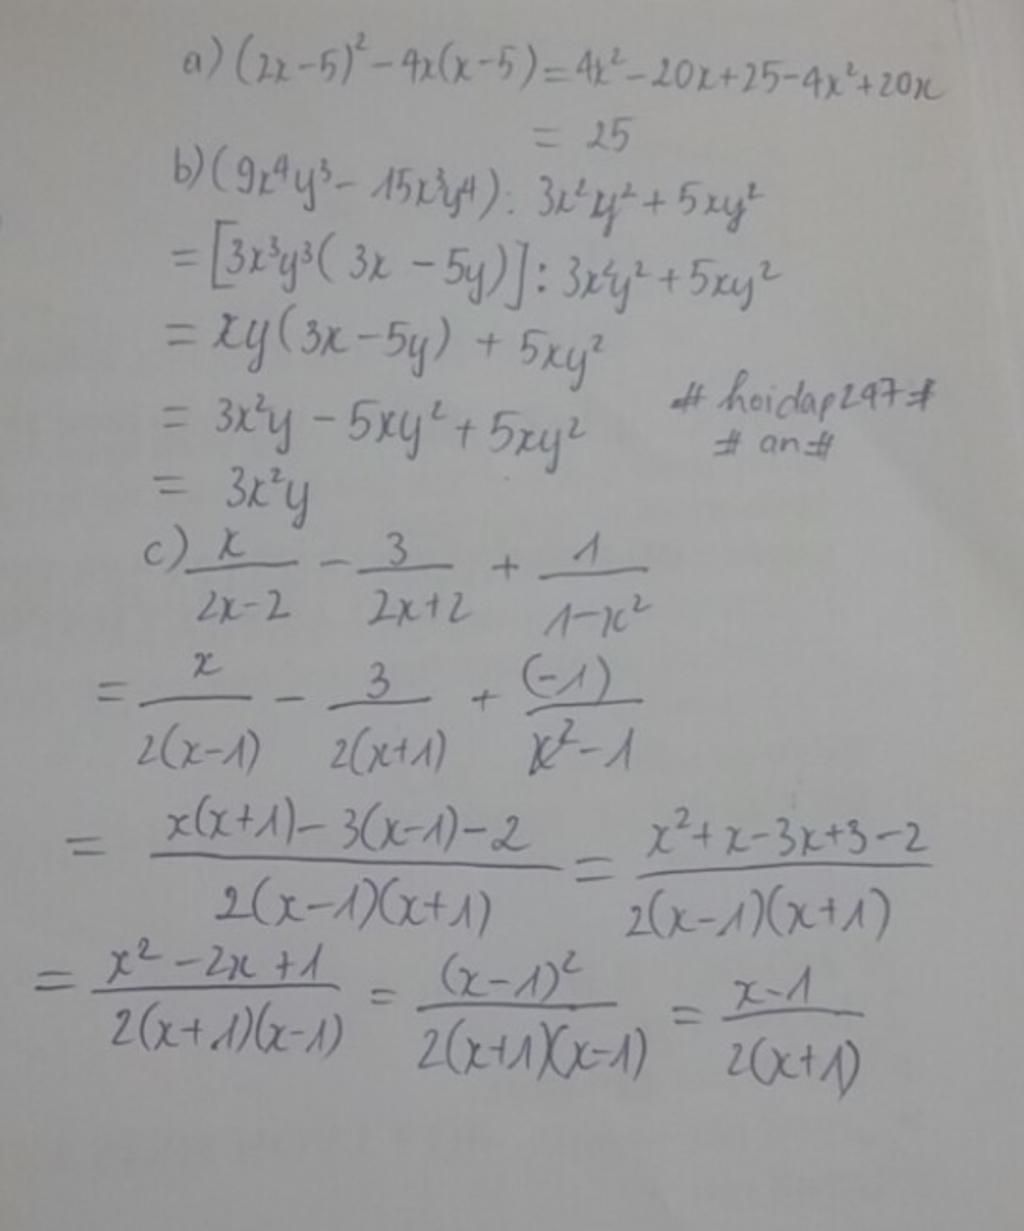 a) (2x-5)² - 4x(x-5) = 4x² - 20x + 25 - 4x² + 20x
= 25
b) (9x⁴y³ - 15x³y⁴) : 3x²y² + 5xy²
= [3x³y³(3x - 5y)] : 3x²y² + 5xy²
= xy(3x - 5y) + 5xy²
= 3x²y - 5xy² + 5xy²
# hoidap247#
# an#
= 3x²y
c) x/(2x-2) - 3/(2x+2) + 1/(1-x²)
= x/2(x-1) - 3/2(x+1) + (-1)/(x²-1)
= (x(x+1) - 3(x-1) - 2)/2(x-1)(x+1) = (x² + x - 3x + 3 - 2)/2(x-1)(x+1)
= (x² - 2x + 1)/2(x+1)(x-1) = (x-1)²/2(x+1)(x-1) = (x-1)/2(x+1)